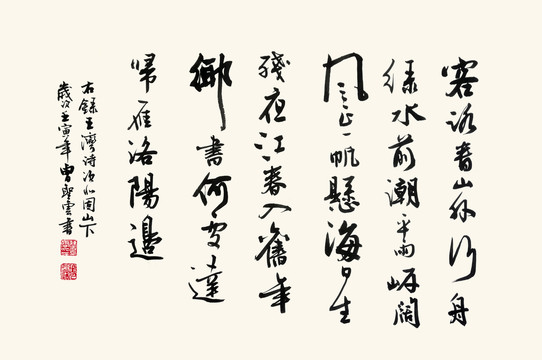 客路青山外行舟
綠水前潮平兩岸闊
風正一帆懸海日生
殘夜江春入舊年
鄉書何處達
歸雁洛陽邊
右錄王灣詩次北固山下
歲次壬寅年曾雲書